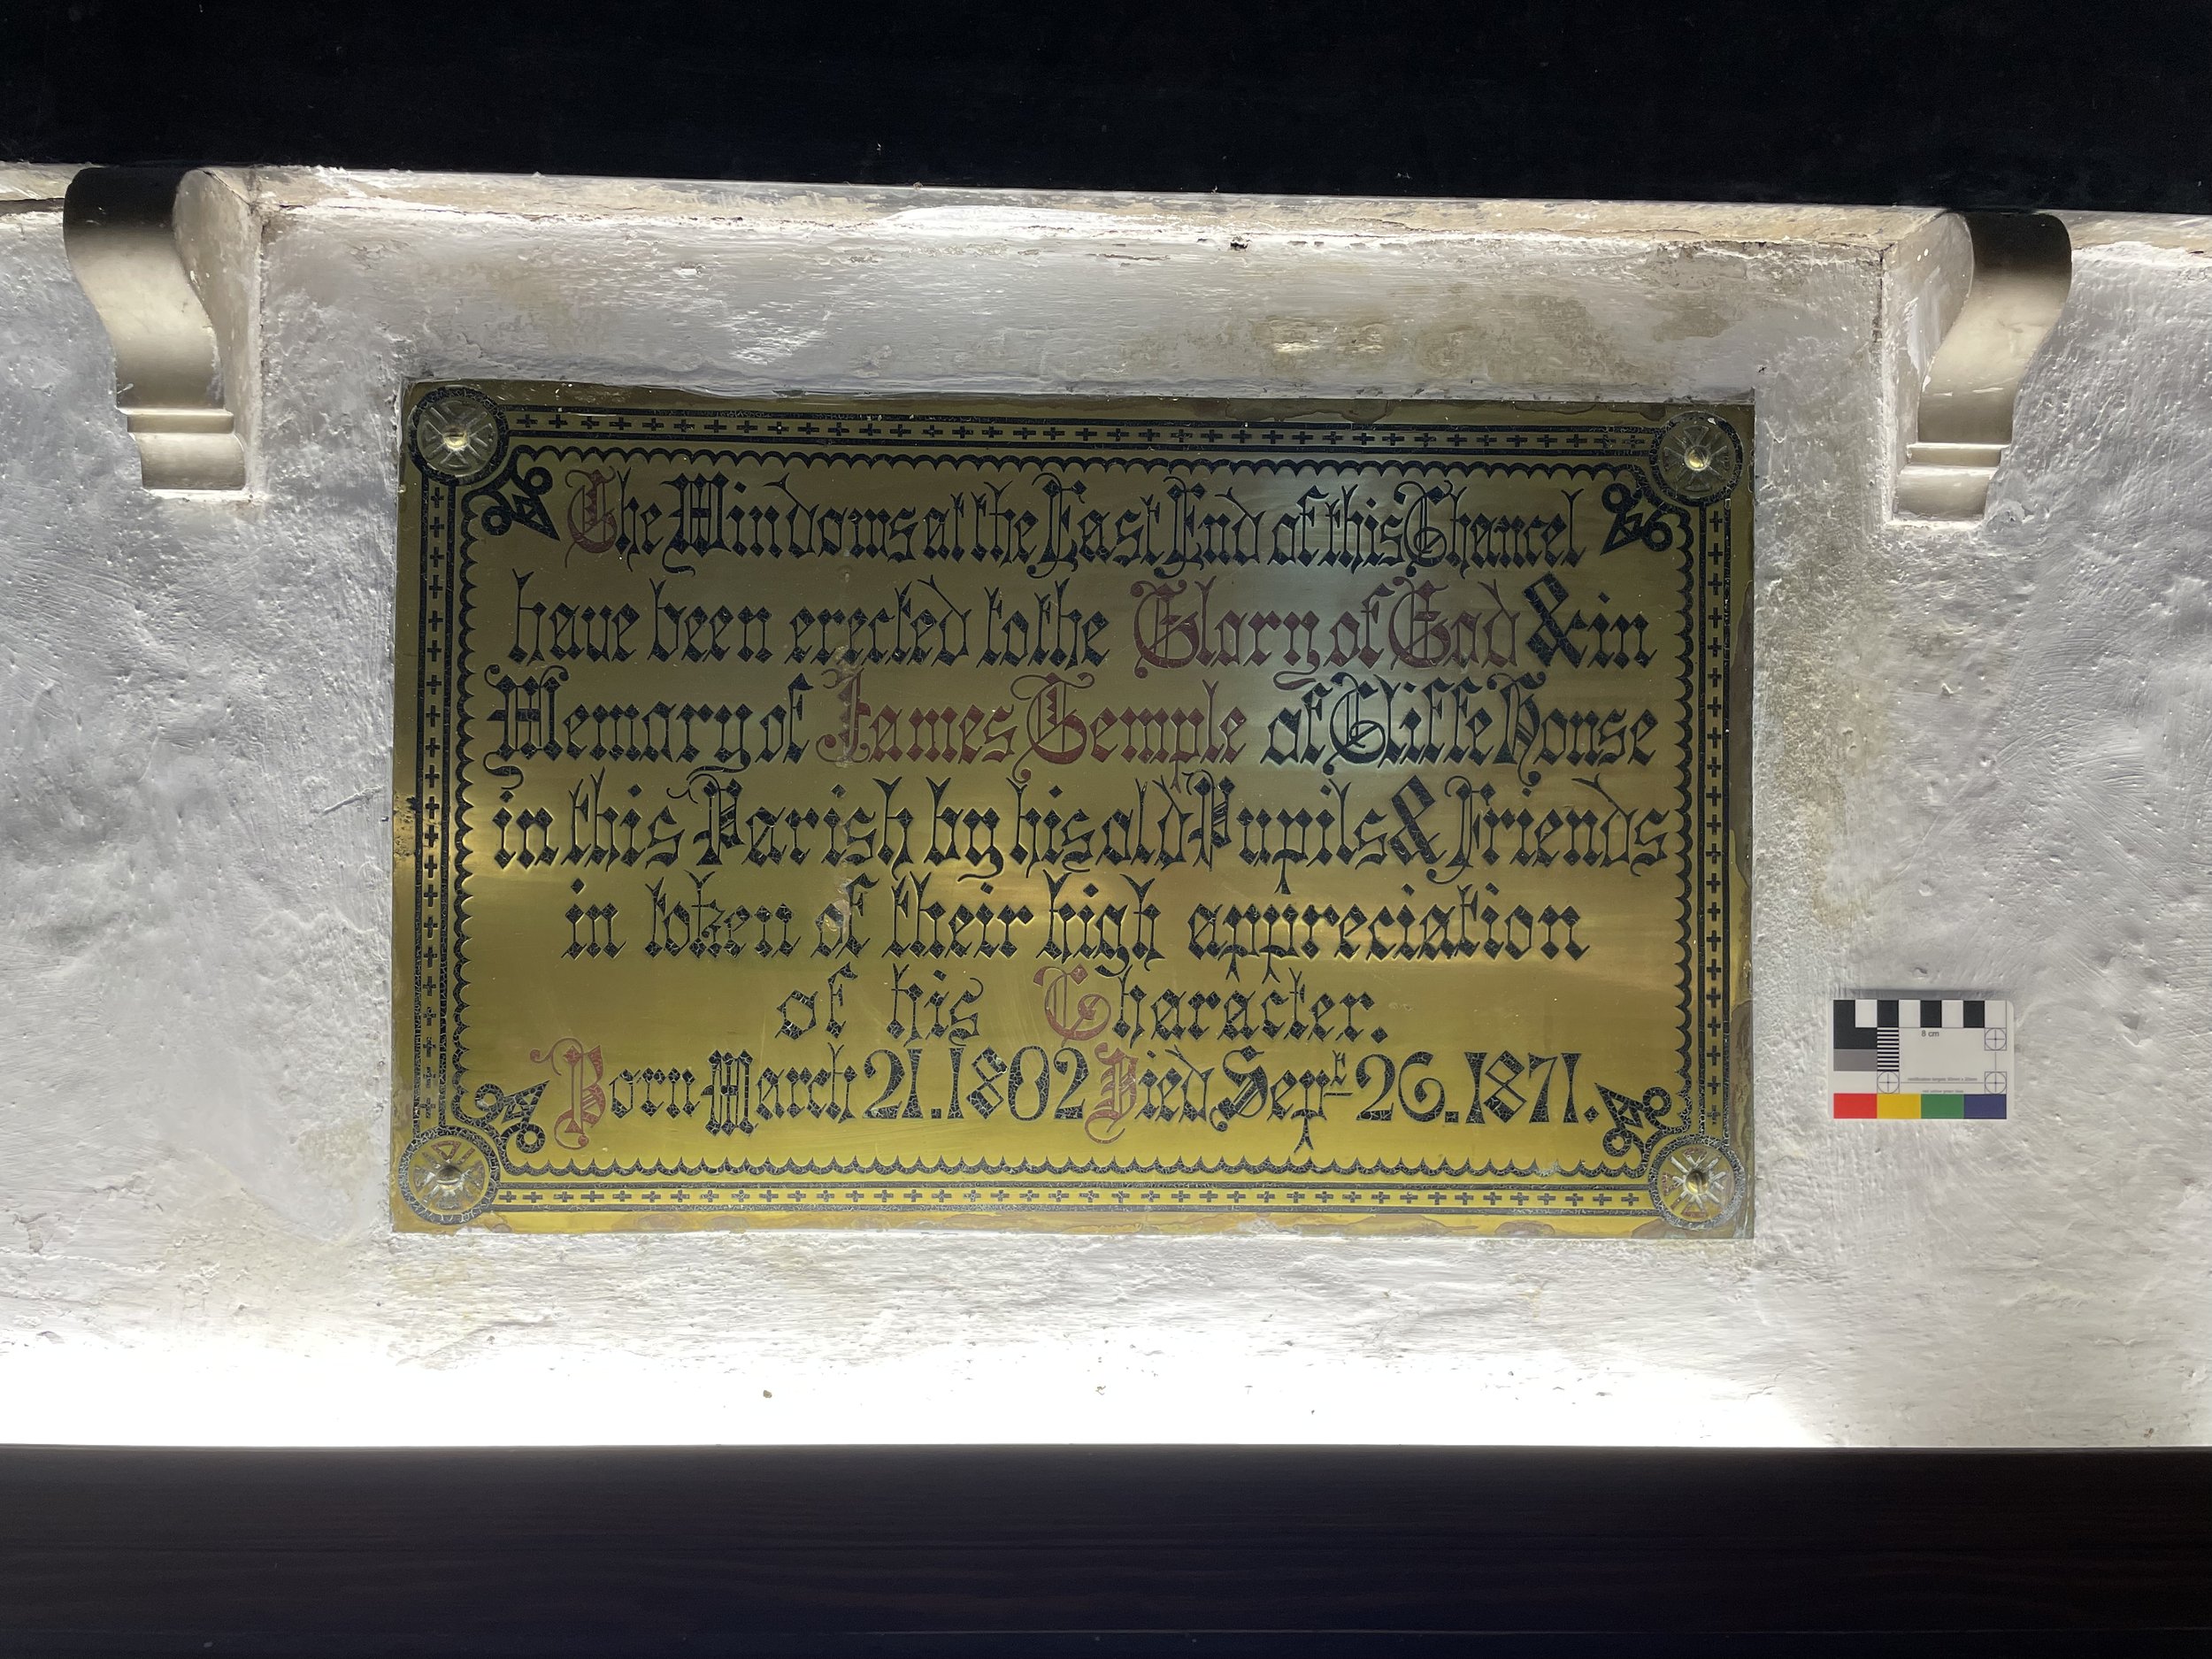 The Windows at the East End of this Chancel
have been erected to the Glory of God & in
Memory of James Temple of Cliffe House
in this Parish by his old Pupils & Friends
in token of their high appreciation
of his Character.
Born March 21. 1802 Died Sept 26. 1871.
8 cm